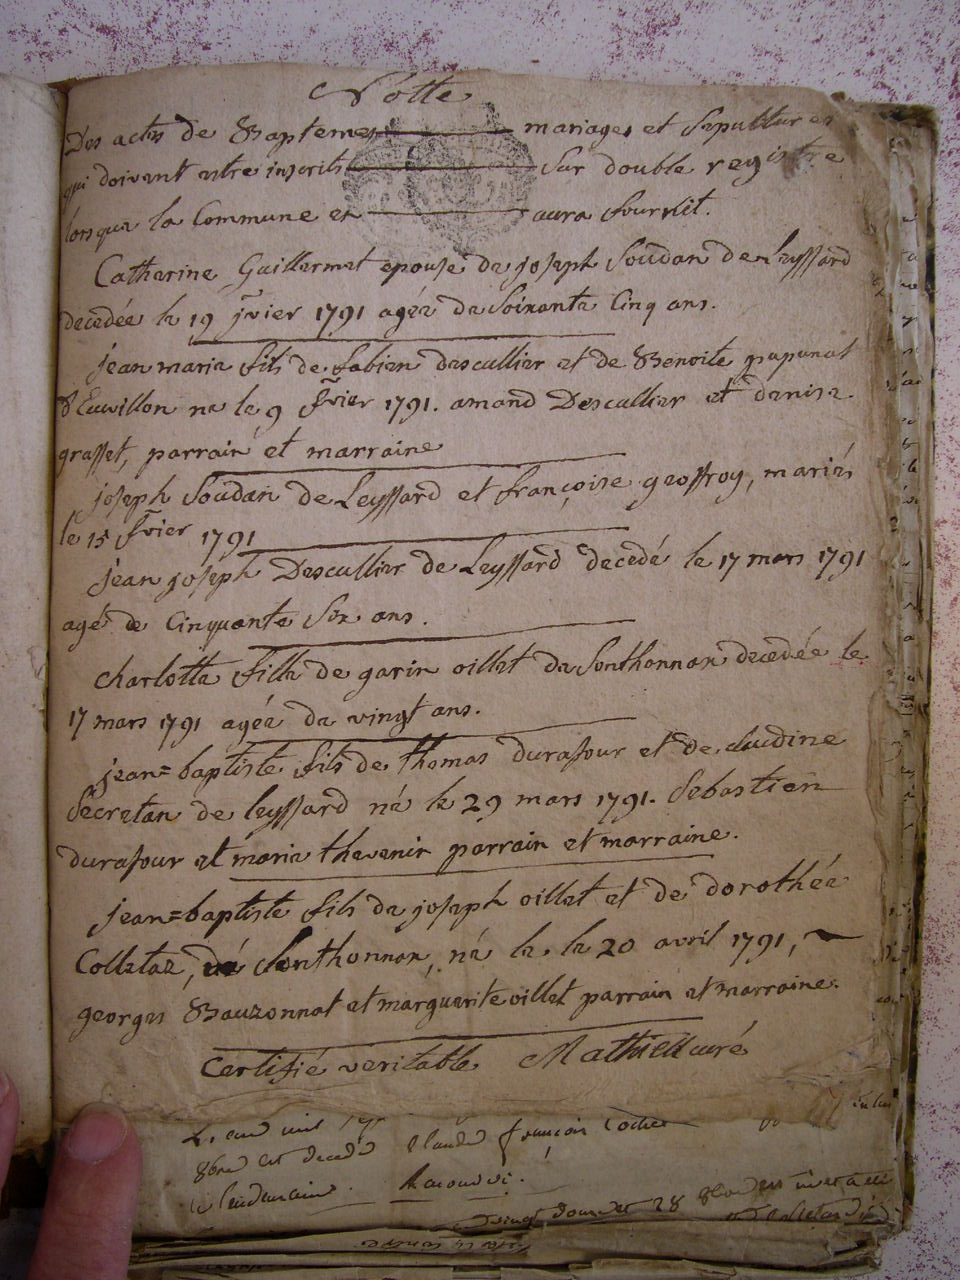 Notte
Des actes de Baptemes mariages et Sepultures
qui doivent estre inscrits Sur double registre
lorsque la Commune en aura fournit.
Catherine Guillermet epouse de joseph Soudan de Leyssard
decedée le 19 jvier 1791 agée de Soixante Cinq ans.
jean marie fils de fabien descullier et de Benoite papunat
d'Euvillon ne le 9 fvrier 1791. amand Descullier et denise
grasset, parrain et marraine
joseph Soudan de Leyssard et françoise geoffroy, mariés
le 15 fvrier 1791
jean joseph Descullier de Leyssard decedé le 17 mars 1791
agé de Cinquante Six ans.
charlotte fille de garin oillet de Sonthonnax decedée le
17 mars 1791 agée de vingt ans.
jean=baptiste fils de thomas durafour et de cludine
Secretan de leyssard né le 29 mars 1791. Sebastien
durafour et marie thevenin parrain et marraine.
jean=baptiste fils de joseph oillet et de dorothée
Colletaz, de Sonthonnax, né le le 20 avril 1791,
georges Bauzonnat et marguerite oillet parrain et marraine.
Certifié veritable Mathieu curé
8bre est decedé Claude françois
le lendemain.
vingt 28